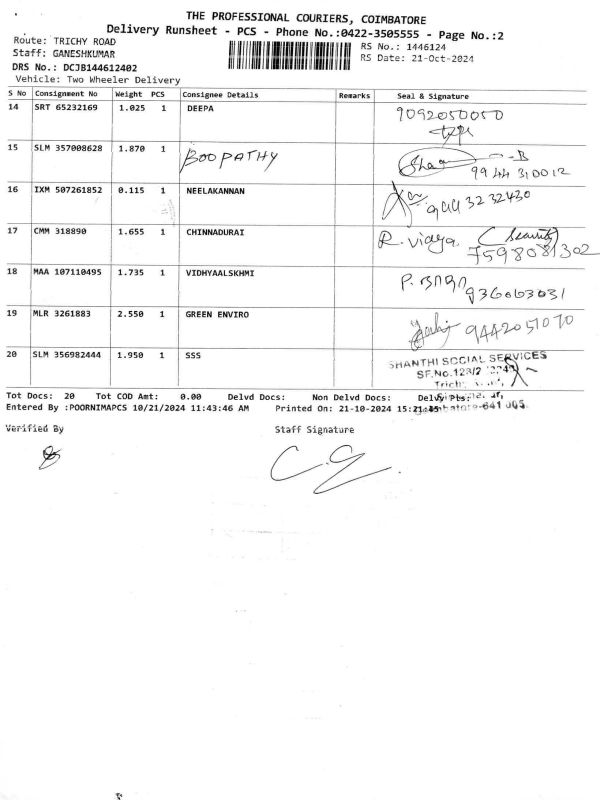 THE PROFESSIONAL COURIERS, COIMBATORE
Delivery Runsheet - PCS - Phone No.:0422-3505555 - Page No.:2
Route: TRICHY ROAD
RS No.: 1446124
Staff: GANESHKUMAR
RS Date: 21-Oct-2024
DRS No.: DCJB144612402
Vehicle: Two Wheeler Delivery
S No Consignment No Weight PCS Consignee Details Remarks Seal & Signature
14 SRT 65232169 1.025 1 DEEPA 9092050050
15 SLM 357008628 1.870 1 BOOPATHY 9944310012
16 IXM 507261852 0.115 1 NEELAKANNAN 9443232430
17 CMM 318890 1.655 1 CHINNADURAI R. vidya (Security)
7598081302
18 MAA 107110495 1.735 1 VIDHYAALSKHMI
19 MLR 3261883 2.550 1 GREEN ENVIRO 9442051070
20 SLM 356982444 1.950 1 SSS SHANTHI SOCIAL SERVICES
Tot Docs: 20 Tot COD Amt: 0.00 Delvd Docs: Non Delvd Docs: Delvy Pts:
Entered By :POORNIMAPCS 10/21/2024 11:43:46 AM Printed On: 21-10-2024
Verified By
Staff Signature